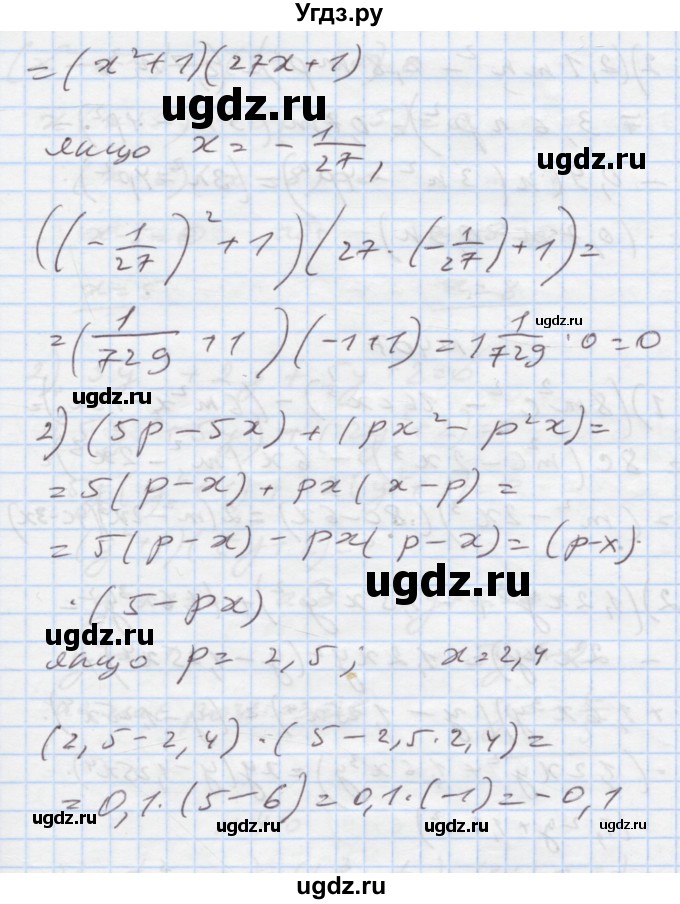 Угдз.ру
= (x² + 1)(27x + 1)
ugdz.ru
якщо x = - 1/27,
ugdz.ru
((- 1/27)² + 1)(27 · (- 1/27) + 1) =
ugdz.ru
= (1/729 + 1)(-1 + 1) = 1 1/729 · 0 = 0
ugdz.ru
2) (5p - 5x) + (px² - p²x) =
= 5(p - x) + px(x - p) =
= 5(p - x) - px(p - x) = (p - x) ·
ugdz.ru
· (5 - px)
ugdz.ru
якщо p = 2,5; x = 2,4
(2,5 - 2,4) · (5 - 2,5 · 2,4) =
= 0,1 · (5 - 6) = 0,1 · (-1) = -0,1
ugdz.ru ugdz.ru ugdz.ru ugdz.ru
ugdz.ru